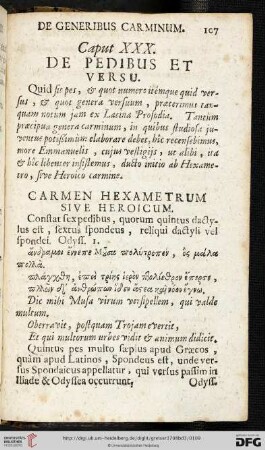 DE GENERIBUS CARMINUM. 107
Caput XXX.
DE PEDIBUS ET
VERSU.
Quid sit pes, & quot numero itémque quid ver-
sus, & quot genera versuum, præterimus tan-
quam notum jam ex Latina Prosodia. Tantum
præcipua genera carminum, in quibus studiosa ju-
ventus potissimùm elaborare debet, hîc recensebimus,
more Emmanuelis, cujus vestigijs, ut alibi, ita
& hîc libenter insistemus, ducto initio ab Hexame-
tro, sive Heroico carmine.
CARMEN HEXAMETRUM
SIVE HEROICUM.
Constat sex pedibus, quorum quintus dacty-
lus est, sextus spondeus, reliqui dactyli vel
spondei. Odyss. 1.
ἄνδρα μοι ἔννεπε Μοῦσα πολύτροπον, ὃς μάλα
πολλὰ
πλάγχθη, ἐπεὶ τροίης ἱερὸν πτολίεθρον ἔπερσε,
πολλῶν δ' ἀνθρώπων ἴδεν ἄστεα καὶ νόον ἔγνω.
Dic mihi Musa virum versipellem, qui valde
multum.
Oberravit, postquam Trojam evertit,
Et qui multorum urbes vidit & animum didicit.
Quintus pes multo sæpius apud Græcos,
quàm apud Latinos, Spondeus est, unde ver-
sus Spondaicus appellatur, qui versus passim in
Iliade & Odyssea occurrunt,
Odyss.
http://digi.ub.uni-heidelberg.de/diglit/gretser1706bd3/0109
© Universitätsbibliothek Heidelberg
gefördert durch die
DFG